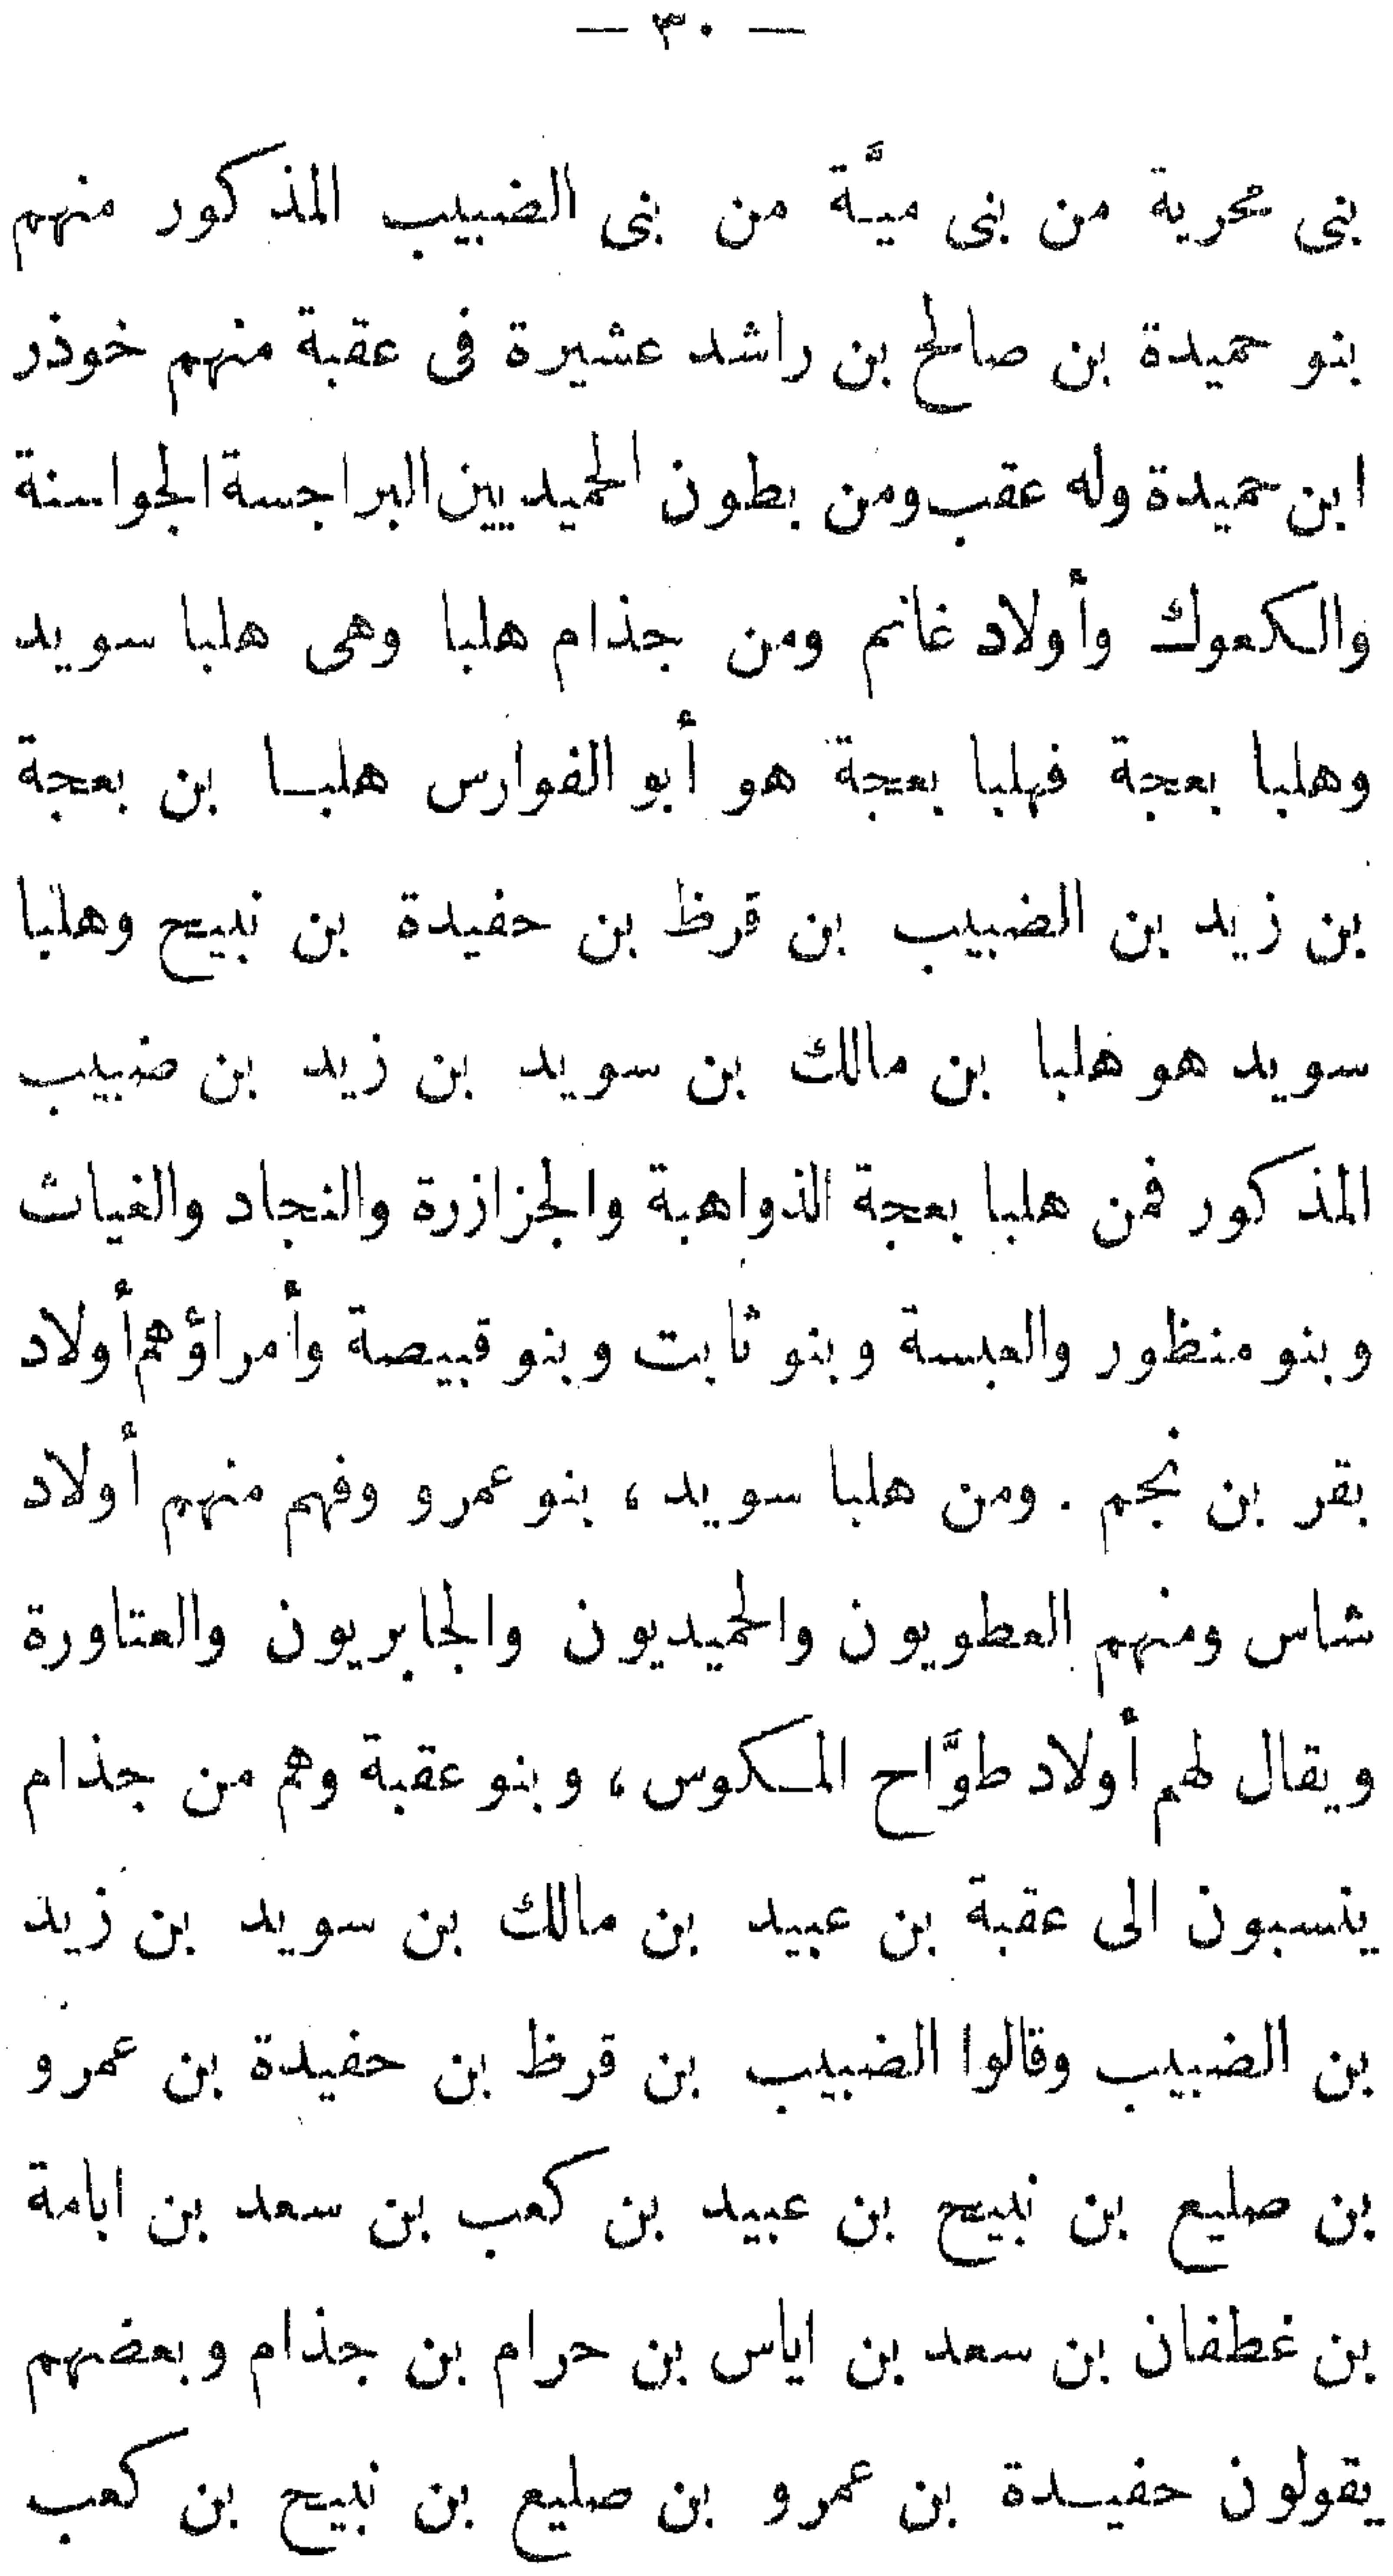 — ٣٠ —
بنى محرية من بنى ميَّة من بنى الضبيب المذكور منهم
بنو حميدة بن صالح بن راشد عشيرة فى عقبة منهم خوذر
ابن حميدة وله عقب ومن بطون الحميديين البراجسة الجواسنة
والكعوك وأولاد غانم ومن جذام هلبا وهى هلبا سويد
وهلبا بعجة فهلبا بعجة هو أبو الفوارس هلبا بن بعجة
بن زيد بن الضبيب بن قرظ بن حفيدة بن نبيح وهلبا
سويد هو هلبا بن مالك بن سويد بن زيد بن ضبيب
المذكور فمن هلبا بعجة الذواهبة والجزازرة والنجاد والغياث
وبنو منظور والعبسة وبنو ثابت وبنو قبيصة وأمراؤهم أولاد
بقر بن نجم . ومن هلبا سويد ، بنو عمرو وفهم منهم أولاد
شاس ومنهم العطويون والحميديون والجابريون والعتاورة
ويقال لهم أولاد طوَّاح المكوس ، وبنو عقبة وهم من جذام
ينسبون الى عقبة بن عبيد بن مالك بن سويد بن زيد
بن الضبيب وقالوا الضبيب بن قرظ بن حفيدة بن عمرو
بن صليع بن نبيح بن عبيد بن كعب بن سعد بن ابامة
بن غطفان بن سعد بن اياس بن حرام بن جذام وبعضهم
يقولون حفيدة بن عمرو بن صليع بن نبيح بن كعب